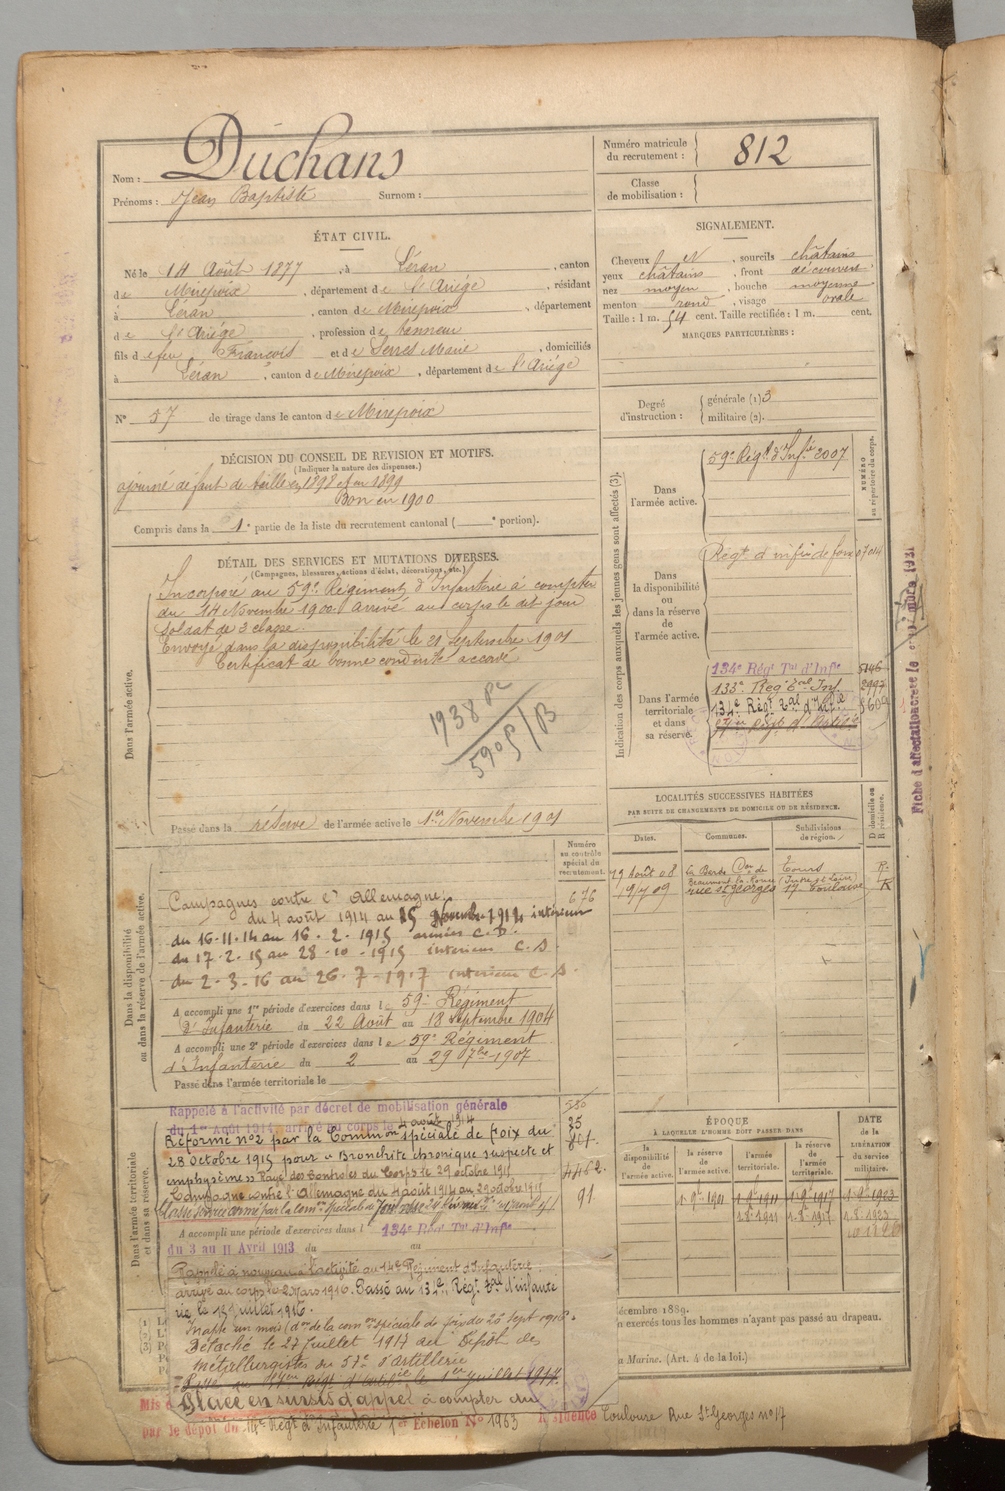 Nom : Duchans
Prénoms : Jean Baptiste Surnom :
Numéro matricule du recrutement : 812
Classe de mobilisation :
ÉTAT CIVIL.
Né le 14 Août 1877, à Léran, canton
de Mirepoix, département de l'Ariége, résidant
à Léran, canton de Mirepoix, département
de l'Ariége, profession de tanneur
fils de feu François et de Serres Marie, domiciliés
à Léran, canton de Mirepoix, département de l'Ariége
N° 57 de tirage dans le canton de Mirepoix
SIGNALEMENT.
Cheveux N, sourcils châtains
yeux châtains, front découvert
nez moyen, bouche moyenne
menton rond, visage ovale
Taille : 1 m. 54 cent. Taille rectifiée : 1 m. cent.
MARQUES PARTICULIÈRES :
Degré d'instruction : générale (1) 3
militaire (2).
DÉCISION DU CONSEIL DE REVISION ET MOTIFS.
(Indiquer la nature des dispenses.)
ajourné défaut de taille en 1898 et en 1899
Bon en 1900
Compris dans la 1e partie de la liste du recrutement cantonal ( e portion).
DÉTAIL DES SERVICES ET MUTATIONS DIVERSES.
(Campagnes, blessures, actions d'éclat, décorations, etc.)
Dans l'armée active.
Incorporé au 59e Régiment d'Infanterie à compter
du 14 Novembre 1900 arrivé au corps le dit jour
soldat de 2 classe.
Envoyé dans la disponibilité le 21 Septembre 1901
Certificat de bonne conduite accordé
1938
590
Passé dans la réserve de l'armée active le 1er Novembre 1901
Indication des corps auxquels les jeunes gens sont affectés (3).
NUMÉRO au répertoire du corps.
Dans l'armée active.
59e Régt d'Infie 2007
Dans la disponibilité ou dans la réserve de l'armée active.
Régt d'infie de foix 07014
Dans l'armée territoriale et dans sa réserve.
134e Régt Tal d'Infie 5146
133e Régt Tal Inf. 2997
134e Régt Tal d'Infie 5609
Fiche d'affectation
1931
LOCALITÉS SUCCESSIVES HABITÉES
PAR SUITE DE CHANGEMENTS DE DOMICILE OU DE RÉSIDENCE.
Dates. Communes. Subdivisions de région. D domicile ou R résidence.
19 Août 08 Tours (Indre et Loire) R.
9/7 09 rue St Georges 17 Toulouse R
Numéro au contrôle spécial du recrutement.
676
Dans la disponibilité ou dans la réserve de l'armée active.
Campagnes contre l'Allemagne :
du 4 août 1914 au 15 Novembre 1914 intérieur
du 16-11-14 au 16-2-1915 armées C.D.
du 17-2-15 au 28-10-1915 intérieur C.S
du 2-3-16 au 26-7-1917 intérieur C.S.
A accompli une 1re période d'exercices dans le 59e Régiment
d'Infanterie du 22 Août au 18 Septembre 1904
A accompli une 2e période d'exercices dans le 59e Régiment
d'Infanterie du 2 au 29 7bre 1907
Passé dans l'armée territoriale le
Dans l'armée territoriale et dans sa réserve.
Rappelé à l'activité par décret de mobilisation générale
du 1er Août 1914, arrivé au corps le 4 août 1914
Réformé n°2 par la Common spéciale de Foix du
28 octobre 1915 pour « Bronchite chronique suspecte et
emphysème » Rayé des Controles du Corps le 29 octobre 1915
Campagne contre l'Allemagne du 4 août 1914 au 29 octobre 1915
35
4462.
91
A accompli une période d'exercices dans l 134e Régt Tal d'Infie
du 3 au 11 Avril 1913 du au
Rappelé à nouveau à l'activité au 14e Régiment d'Infanterie
arrivé au corps le 2 Mars 1916. Passé au 134e Régt Tal d'infante
rie le 13 juillet 1916.
Inapte un mois (don de la comon spéciale de foix du 26 sept 1916.
Détaché le 27 Juillet 1917 au Dépôt des
métallurgistes du 57e d'Artillerie
Placé en sursis d'appel à compter du
par le dépôt du 14e Régt d'Infanterie 1er Echelon N° 1963 Résidence Toulouse Rue St Georges n° 17
ÉPOQUE
À LAQUELLE L'HOMME DOIT PASSER DANS
la disponibilité de l'armée active. la réserve de l'armée active. l'armée territoriale. la réserve de l'armée territoriale.
DATE de la LIBÉRATION du service militaire.
1-9bre-1901 1-9bre-1911 1-9bre-1917 1-9bre-1923
1.8.1911 1.8.1917 1.8.1923
décembre 1889.
n exercés tous les hommes n'ayant pas passé au drapeau.
a Marine. (Art. 4 de la loi.)